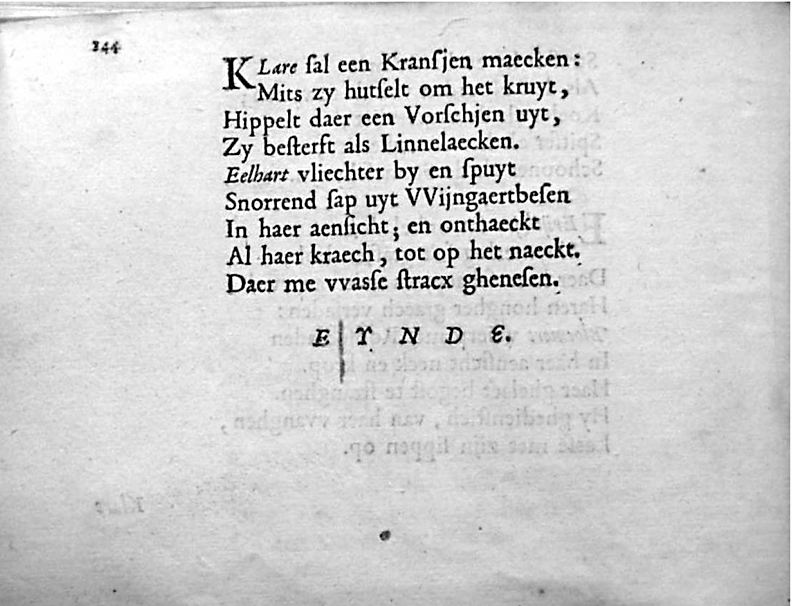 244
KLare ſal een Kranſjen maecken:
Mits zy hutſelt om het kruyt,
Hippelt daer een Vorſchjen uyt,
Zy beſterft als Linnelaecken.
Eelhart vliechter by en ſpuyt
Snorrend ſap uyt VVijngaertbeſen
In haer aenſicht; en onthaeckt
Al haer kraech, tot op het naeckt.
Daer me vvasſe ſtracx gheneſen.
EYNDE.